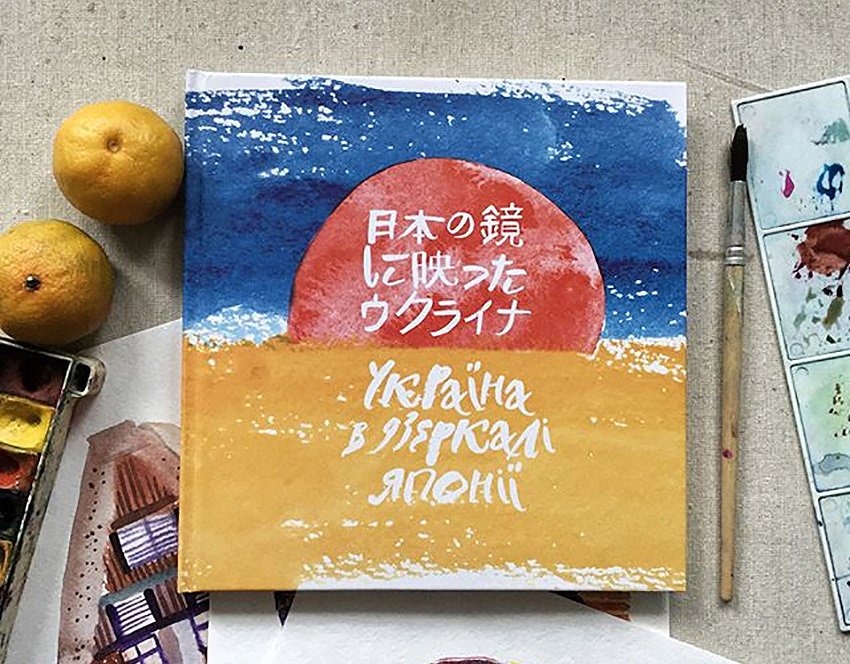 日本の鏡
に映った
ウクライナ
Україна
в дзеркалі
Японії